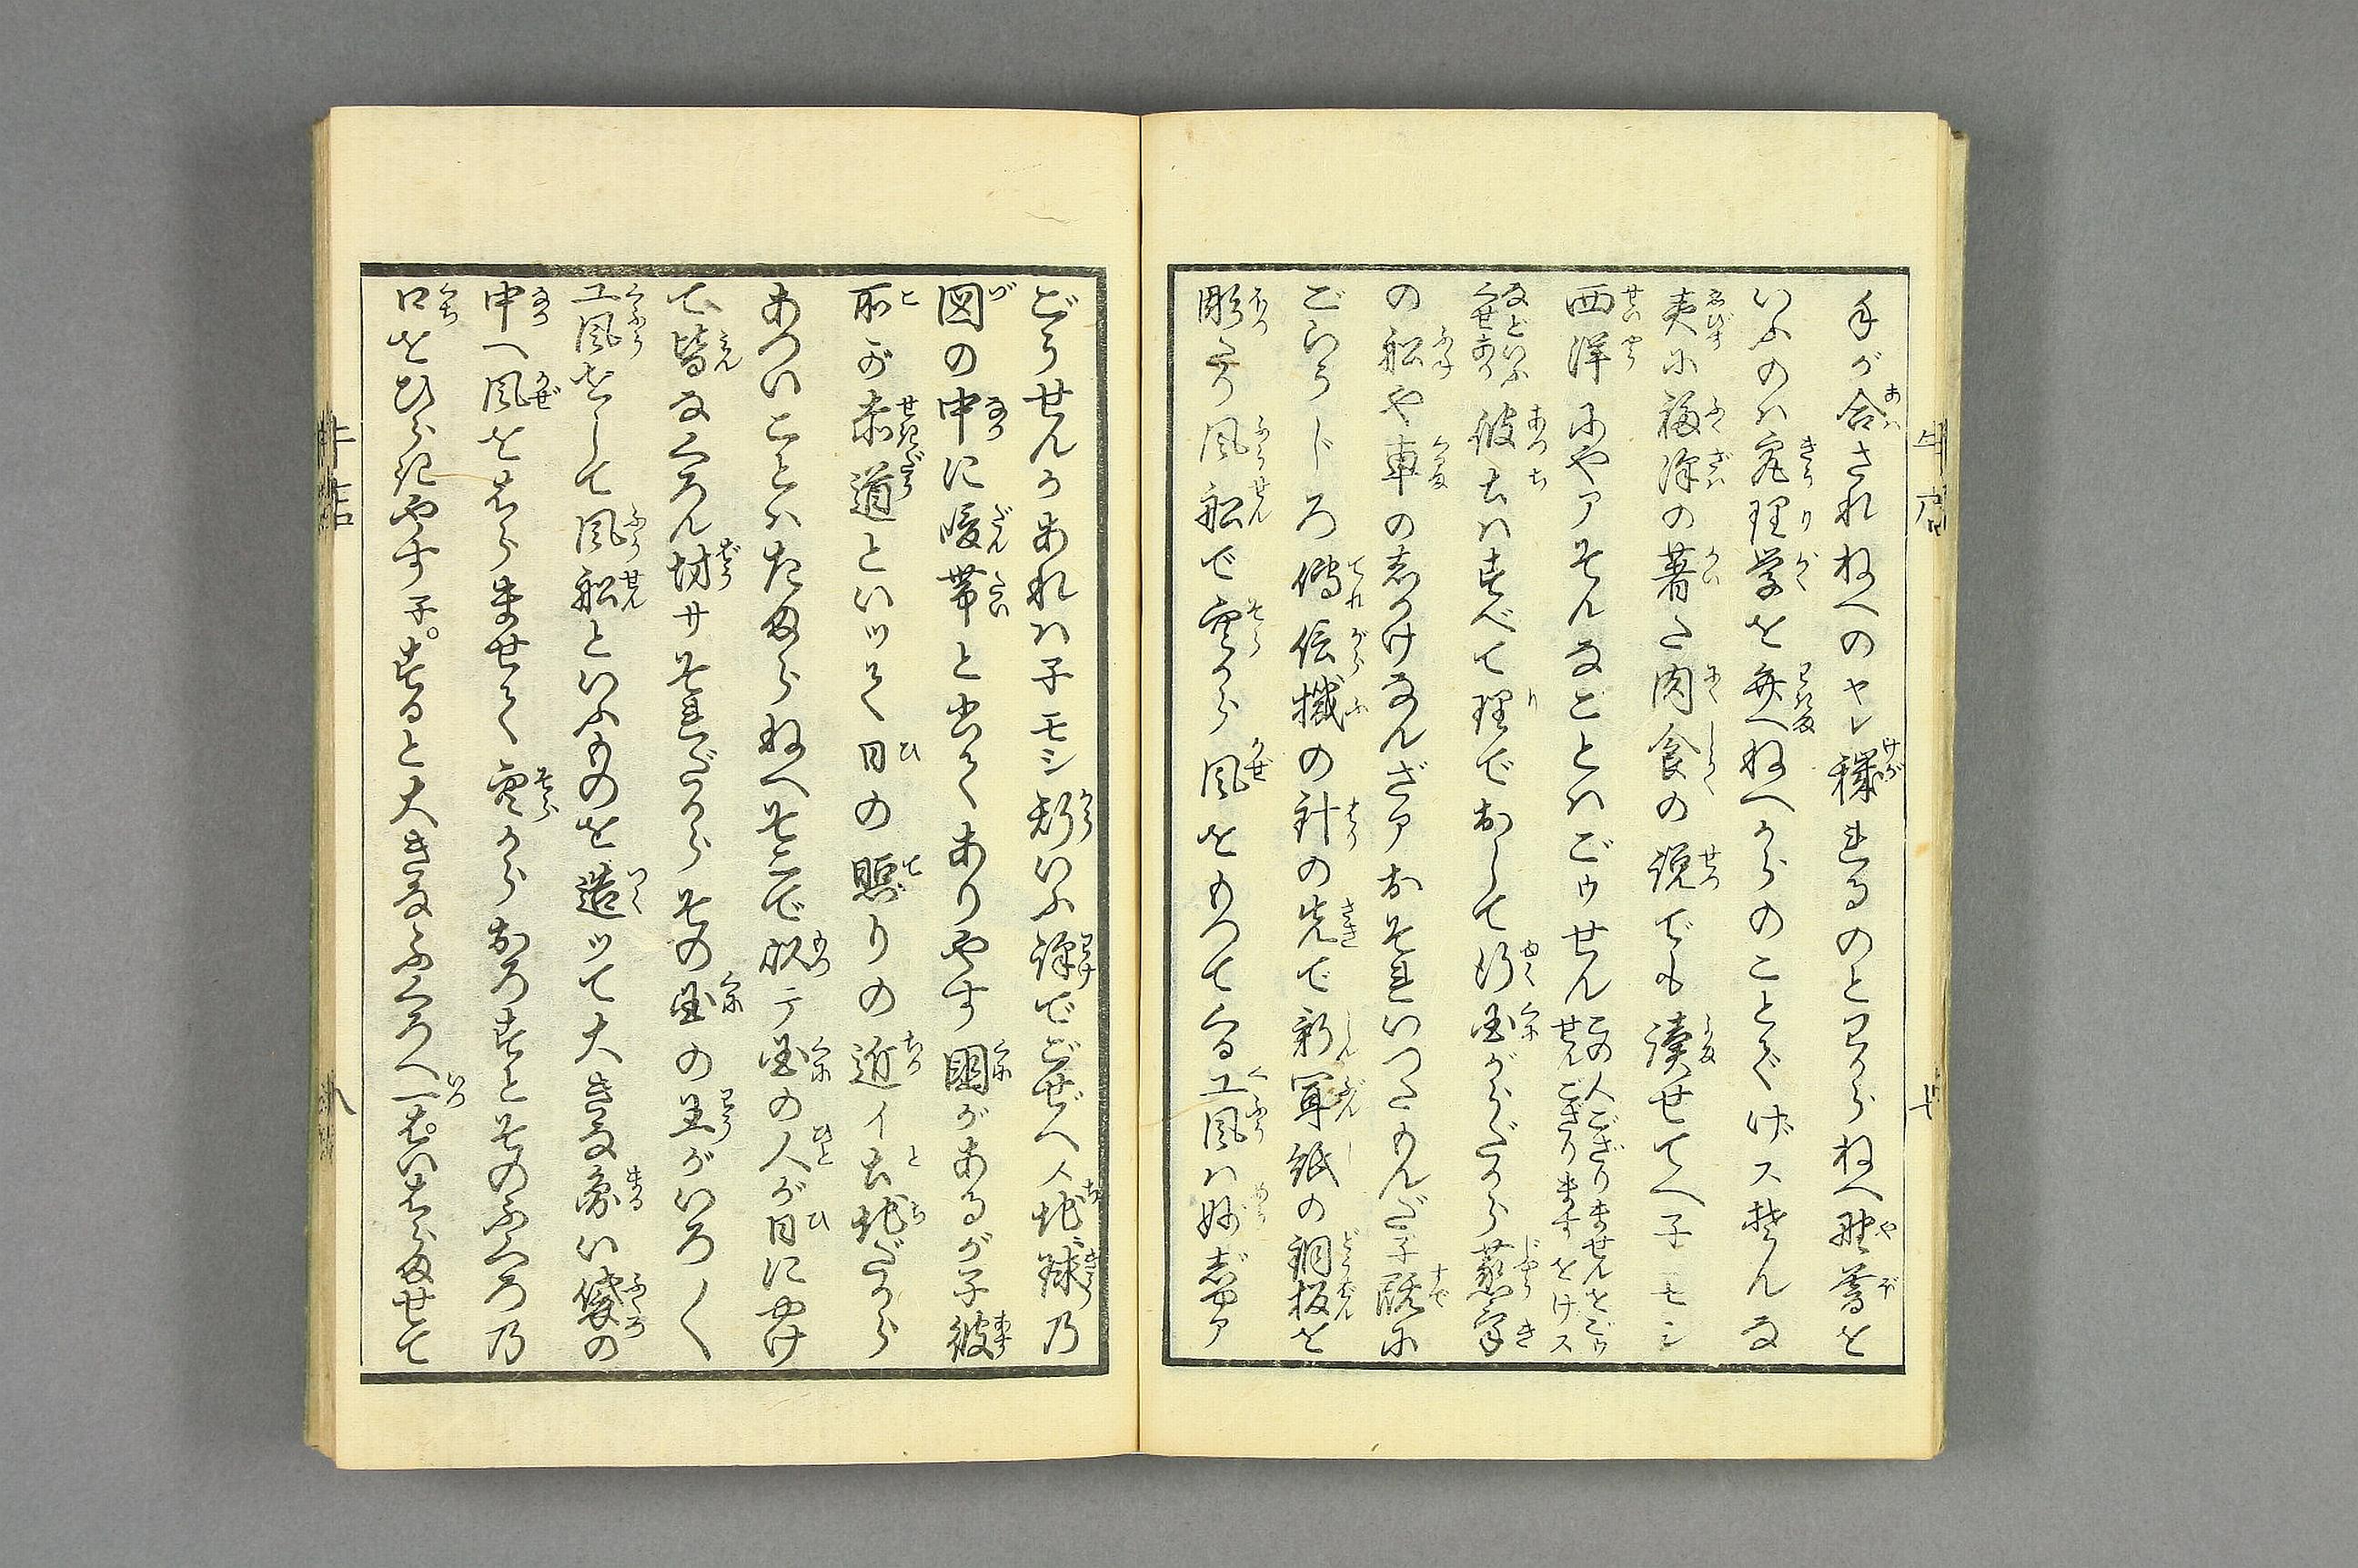 手が合されねへのヤレ穢れるのとわからねへ野暮を
いふのは究理学を弁へねへからのことでげスそんな
夷に福沢の著た肉食の説でも読せてへ子モシ
西洋にやアそんなことはごウせんこの人ござりませんをごウせんござりますをげス
などいふくせあり彼土はすべて理でおして行国がらだから蒸気
の船や車のしかけなんざアおそれいつたもんだ子既に
ごらうじろ傳信機の針の先で新聞紙の銅板を
彫たり風船で空から風をもつてくる工風は妙じやア
どうせんかあれは子モシ斯いふ訳でごぜへス地球乃
図の中に暖帯と書てありやす国があるが子彼
所が赤道といツて日の照りの近イ土地だから
あついことはたまらねへそこで以テ国の人が日にやけ
て皆なくろん坊サそれだからその国の王がいろ〱
工風をして風船といふものを造ツて大きな円い袋の
中へ風をはらませて空からおろすとそのふくろ乃
口をひらきやす子。すると大きなふくろへ一ぱいはらませて
牛店
七
牛店
八